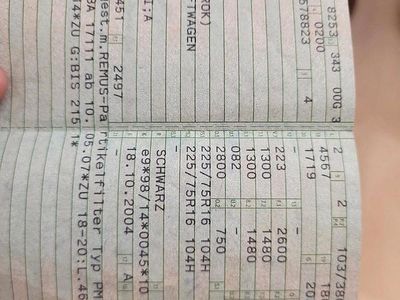 8253 343 00G 3
0200
578823 4
ROK)
FTWAGEN
I;A
451 2497
2 2 103/38
4567 18
1719 20
223 - 2600
1300 1480
1300 1480
082 - -
2800 750
225/75R16 104H
225/75R16 104H
-
SCHWARZ
e9*98/14*0045*10
18.10.2004 A
-
est.m.REMUS-Partikelfilter Typ PM
BA 17111 ab 10.05.07*ZU 18-20:L.46
4*ZU G:BIS 215.1*